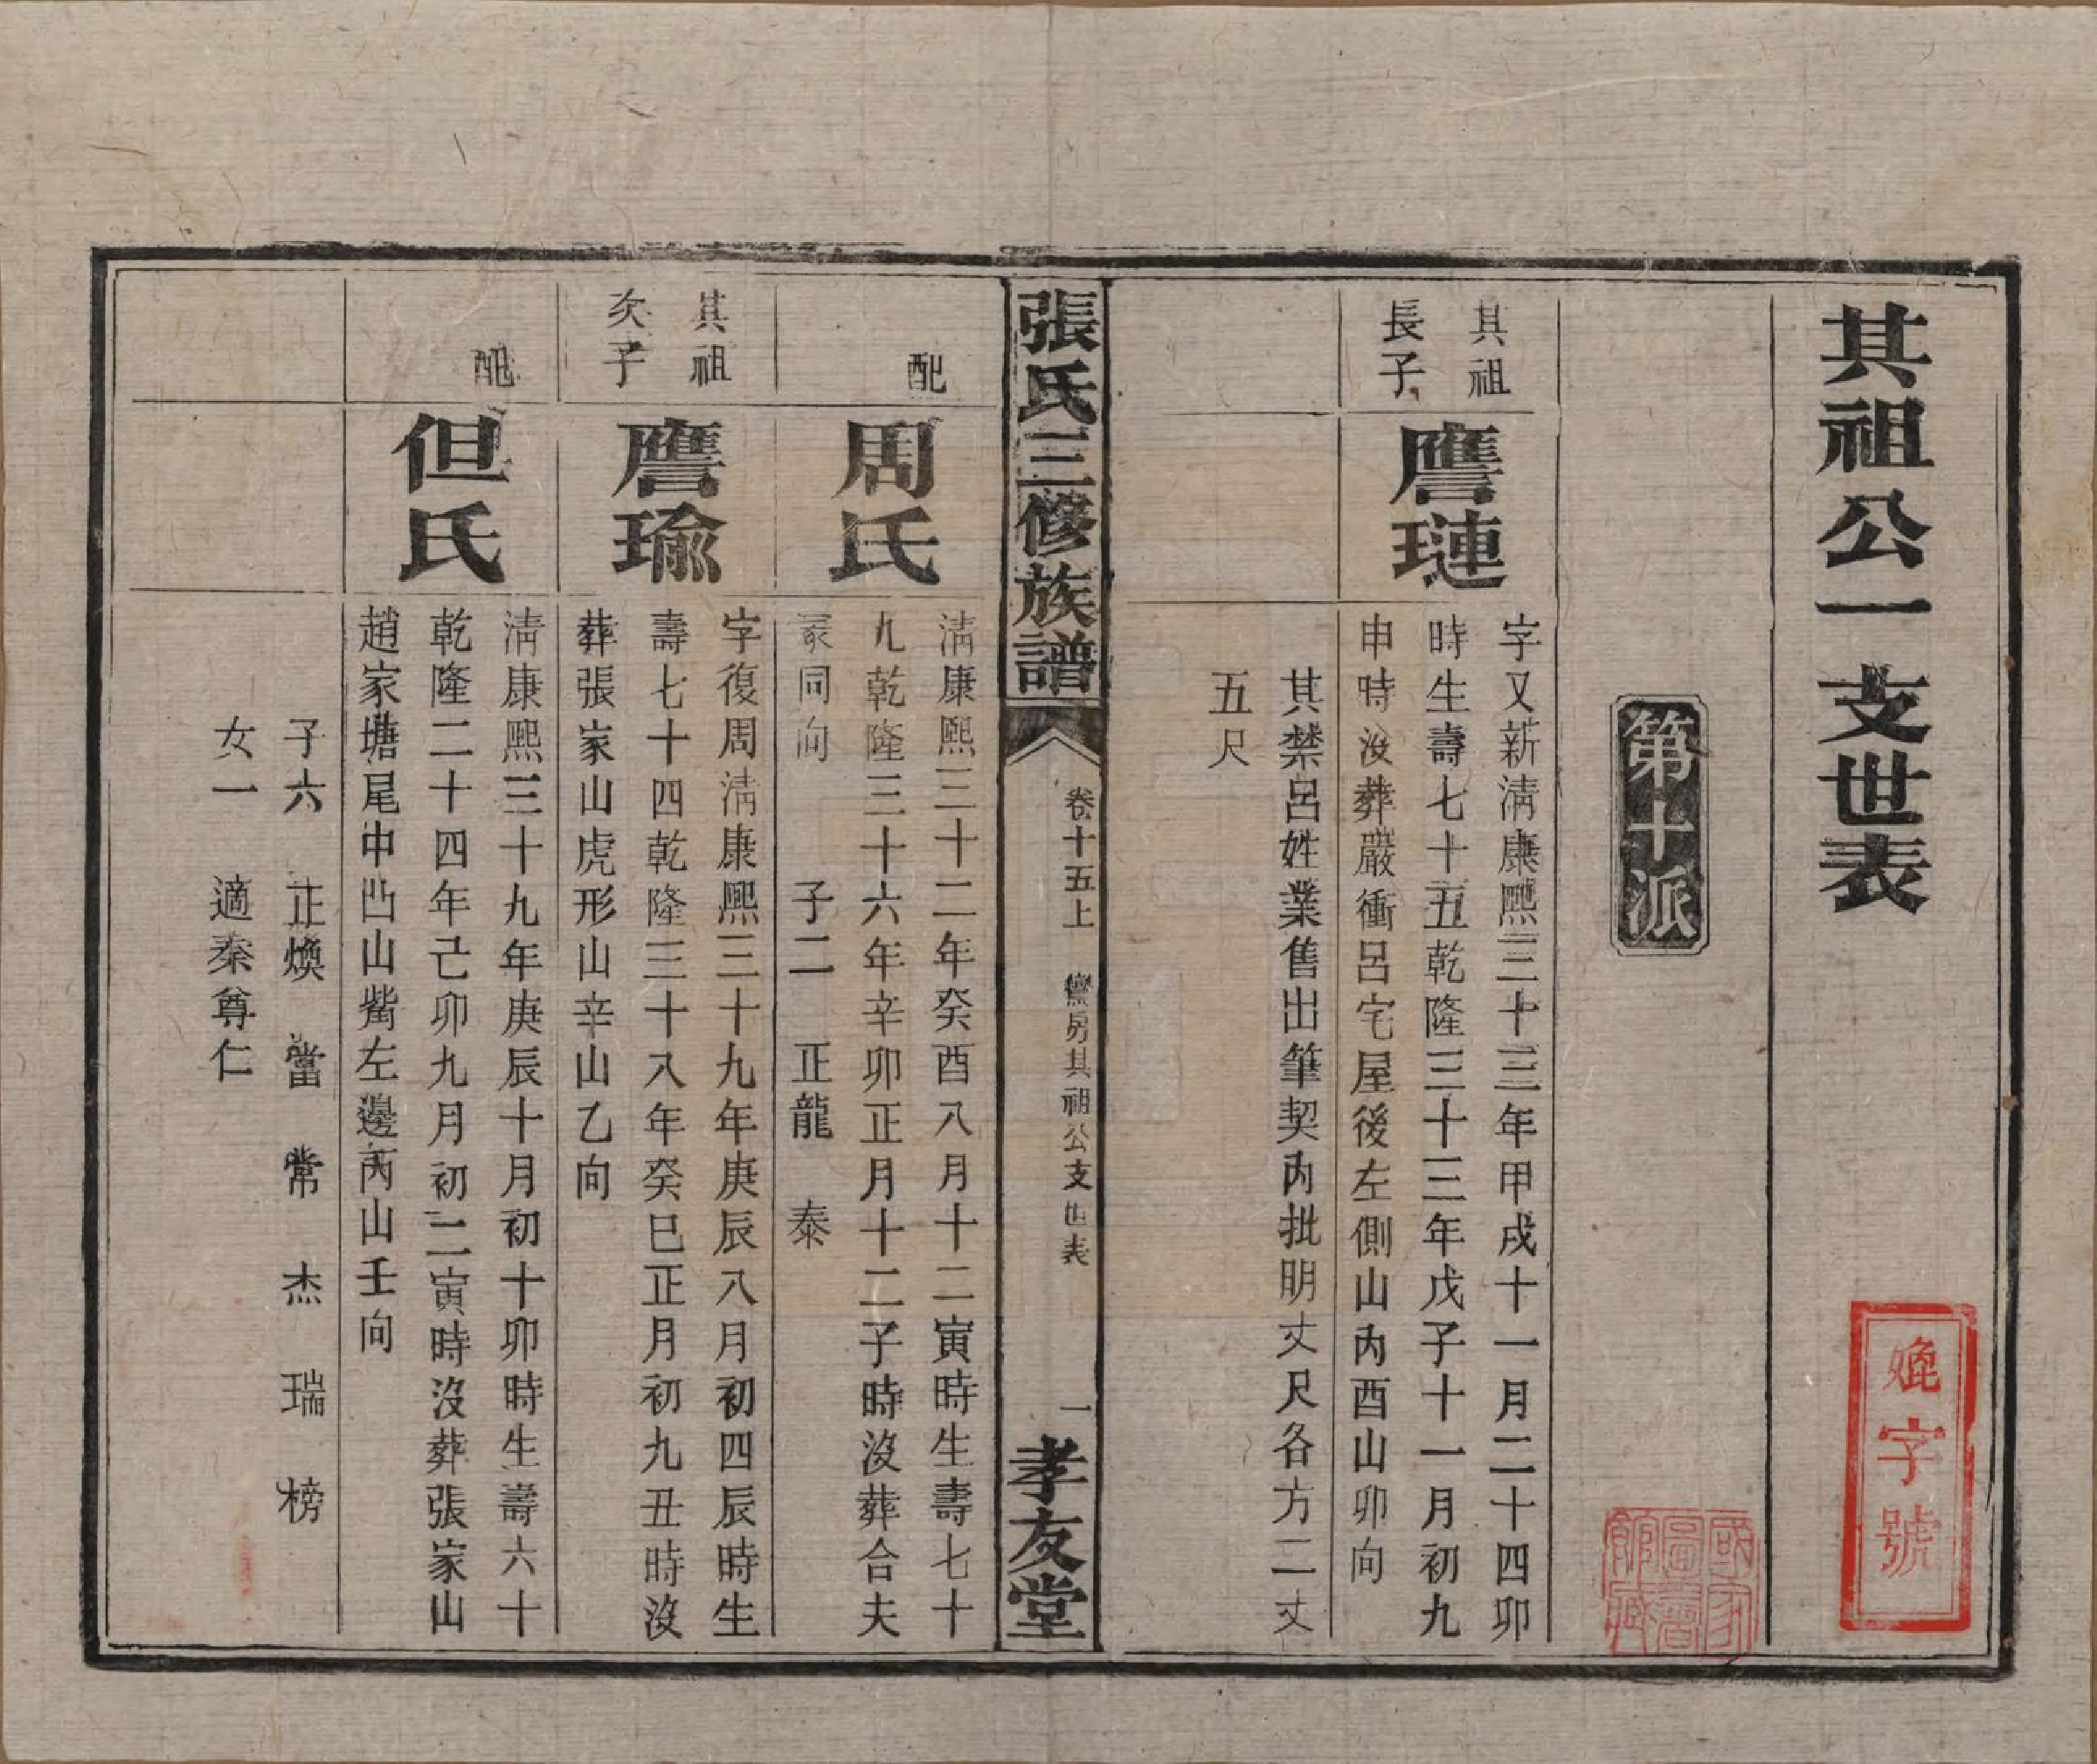 其祖公一支世表
婏字號
國家圖書館藏
第十派
其祖長子
譍璉
字又新淸康熙三十三年甲戌十一月二十四卯
時生壽七十五乾隆三十三年戊子十一月初九
申時沒葬嚴衝呂宅屋後左側山內酉山卯向
其禁呂姓業售出筆契內批明丈尺各方二丈
五尺
張氏三修族譜
卷十五上
房其祖公支世表
一
孝友堂
配
周氏
淸康熙三十二年癸酉八月十二寅時生壽七十
九乾隆三十六年辛卯正月十二子時沒葬合夫
冢同向 子二 正龍 泰
其祖次子
譍瑜
字復周淸康熙三十九年庚辰八月初四辰時生
壽七十四乾隆三十八年癸巳正月初九丑時沒
葬張家山虎形山辛山乙向
配
但氏
淸康熙三十九年庚辰十月初十卯時生壽六十
乾隆二十四年己卯九月初二寅時沒葬張家山
趙家塘尾中凹山觜左邊丙山壬向
子六 正煥 當 常 杰 瑞 榜
女一 適秦尊仁